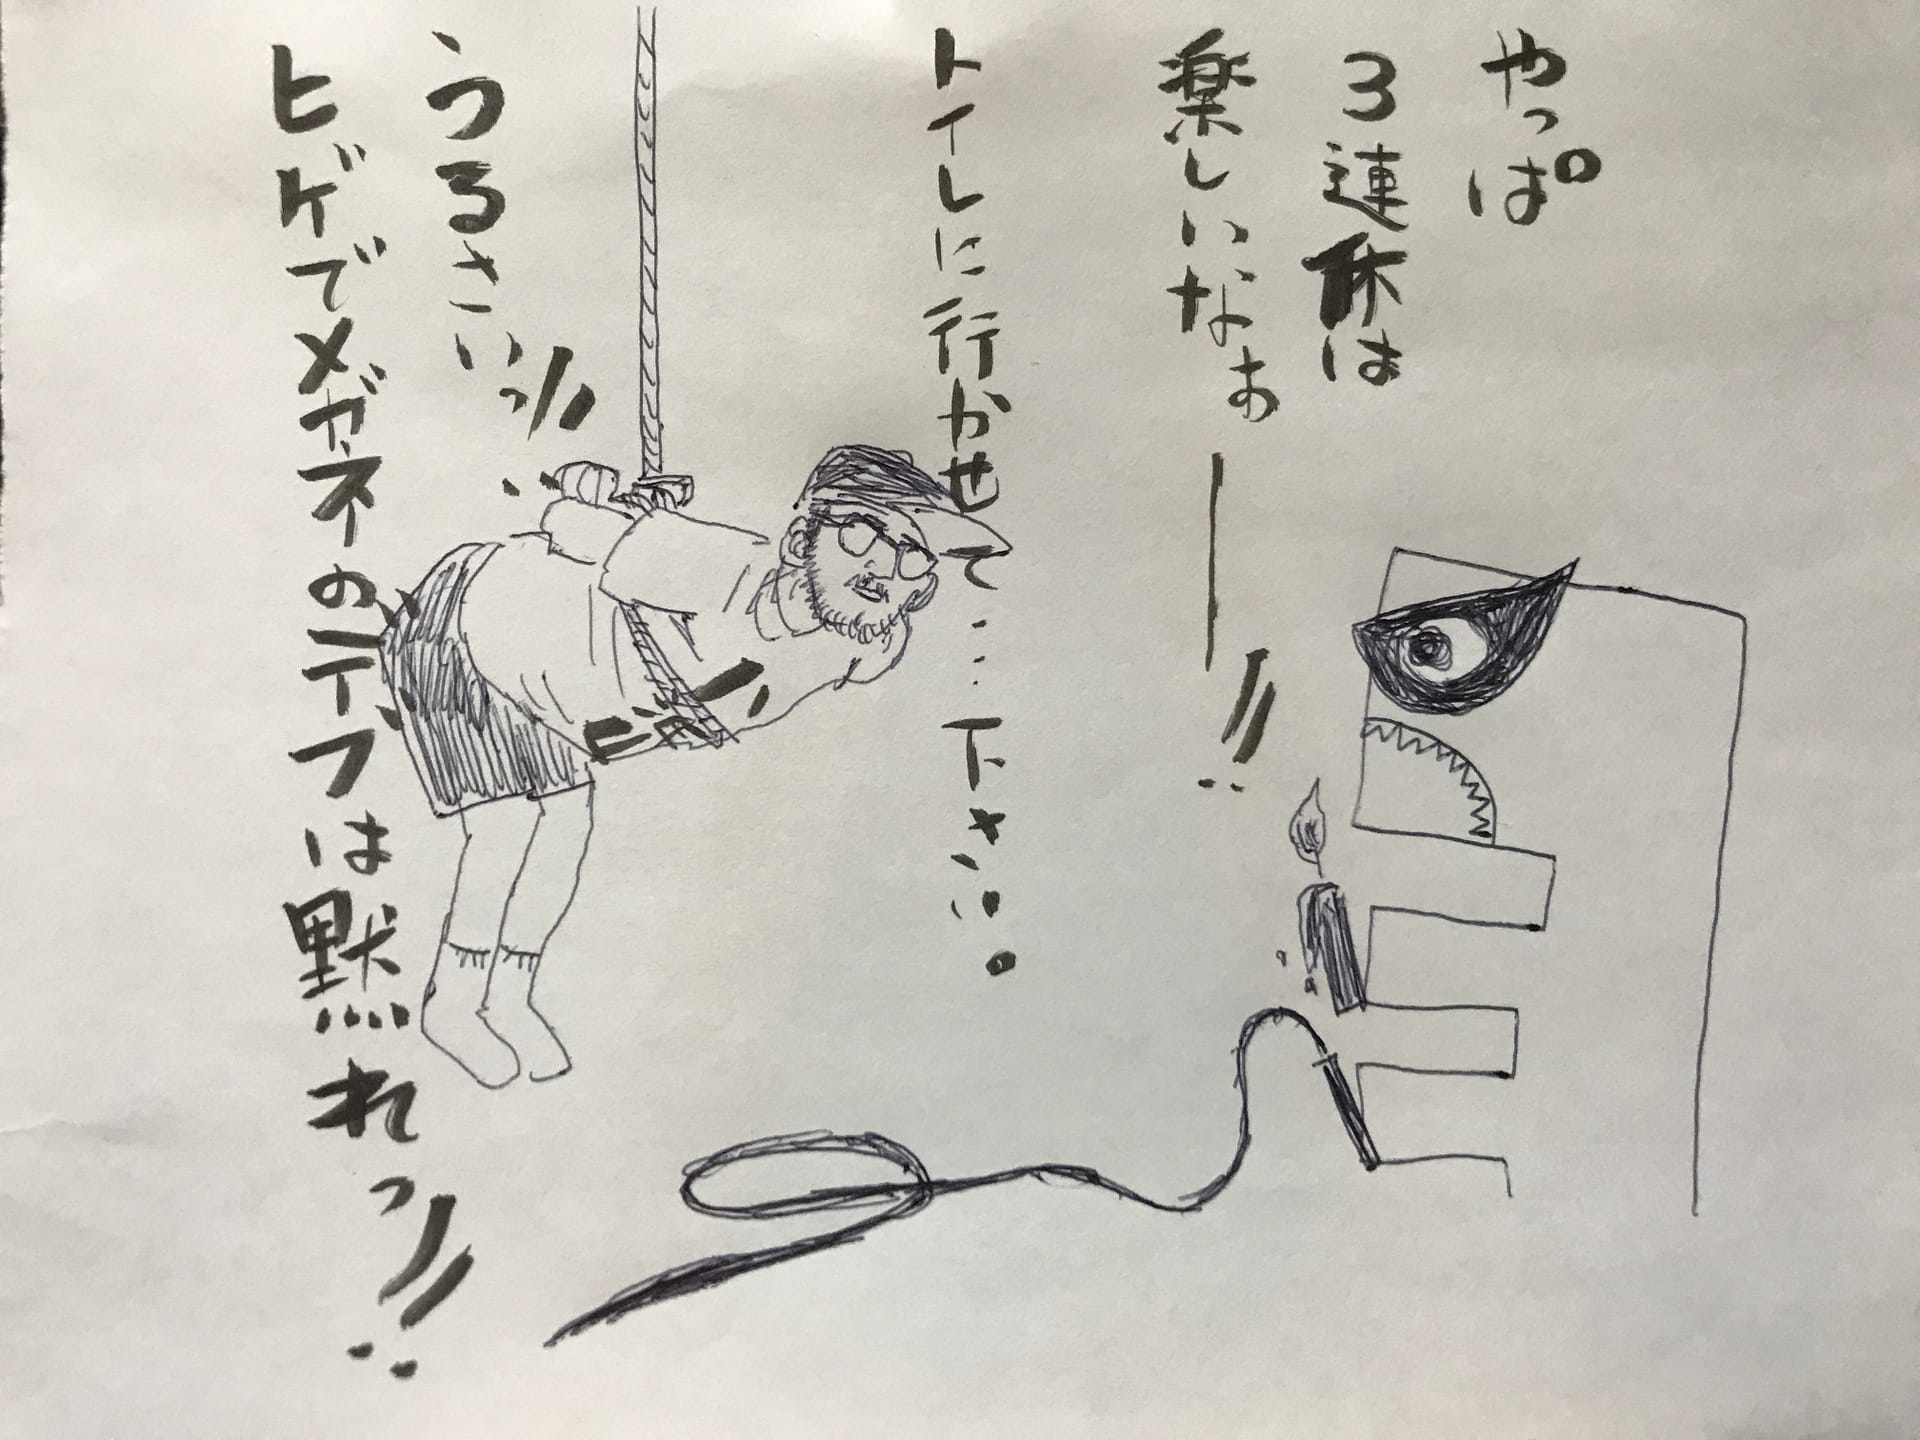 やっぱ
3連休は
楽しいなぁー!!
トイレに行かせて……下さい。
うるさいっ!!
ヒゲでメガネのデブは黙れっ!!
ビシー